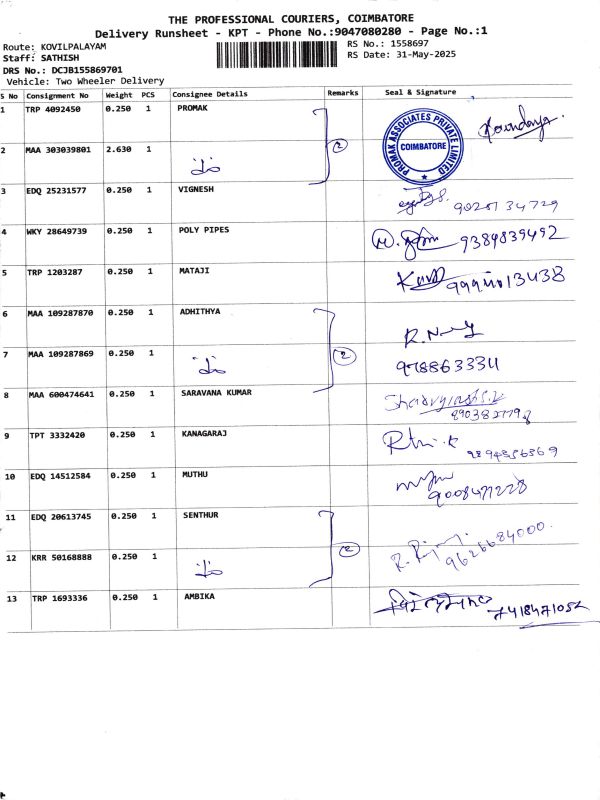 THE PROFESSIONAL COURIERS, COIMBATORE
Delivery Runsheet - KPT - Phone No.:9047080280 - Page No.:1
Route: KOVILPALAYAM
RS No.: 1558697
Staff: SATHISH
RS Date: 31-May-2025
DRS No.: DCJB155869701
Vehicle: Two Wheeler Delivery
S No Consignment No Weight PCS Consignee Details Remarks Seal & Signature
1 TRP 4092450 0.250 1 PROMAK
PROMAK ASSOCIATES PRIVATE LIMITED
COIMBATORE
2 MAA 303039801 2.630 1
2
3 EDQ 25231577 0.250 1 VIGNESH
4 WKY 28649739 0.250 1 POLY PIPES 9384839492
5 TRP 1203287 0.250 1 MATAJI
6 MAA 109287870 0.250 1 ADHITHYA
7 MAA 109287869 0.250 1
2
8 MAA 600474641 0.250 1 SARAVANA KUMAR
9 TPT 3332420 0.250 1 KANAGARAJ
10 EDQ 14512584 0.250 1 MUTHU
11 EDQ 20613745 0.250 1 SENTHUR
9626684000
12 KRR 50168888 0.250 1
2
13 TRP 1693336 0.250 1 AMBIKA